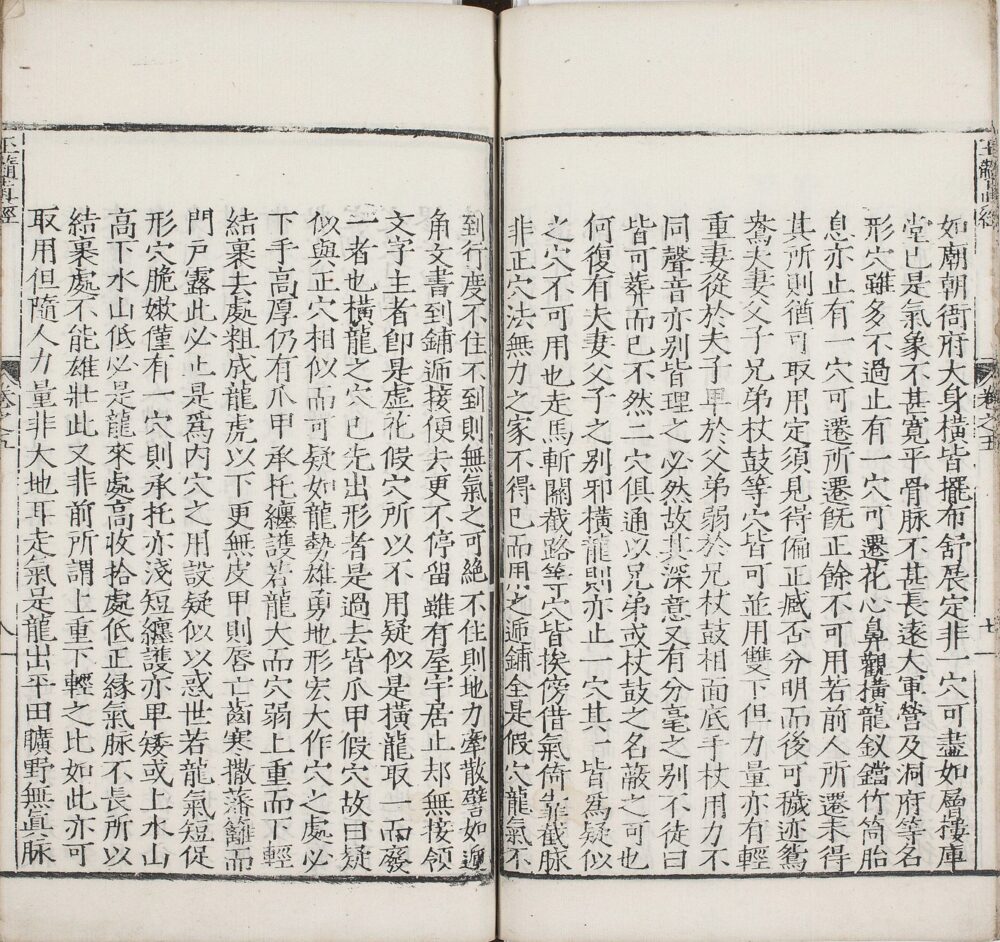 如廟朝衙府大身橫皆擺布舒展定非一穴可盡如層樓庫
堂已是氣象不甚寬平骨脉不甚長遠大軍營及洞府等名
形穴雖多不過止有一穴可遷花心鼻觀橫龍釵鐺竹筒胎
息亦止有一穴可遷所遷旣正餘不可用若前人所遷未得
其所則猶可取用定須見得偏正臧否分明而後可穢迹鴛
鴦夫妻父子兄弟杖鼓等穴皆可並用雙下但力量亦有輕
重妻從於夫子卑於父弟弱於兄杖鼓相面底手杖用力不
同聲音亦别皆理之必然故其深意又有分毫之别不徒曰
皆可葬而已不然二穴俱通以兄弟或杖鼓之名蔽之可也
何復有夫妻父子之别邪橫龍則亦止一穴其一皆為疑似
之穴不可用也走馬斬關截路等穴皆挨傍借氣倚靠截脉
非正穴法無力之家不得已而用之遞鋪全是假穴龍氣不
到行度不住不到則無氣之可絶不住則地力牽散譬如遞
角文書到鋪遞接便去更不停留雖有屋宇居止却無接領
文字主者卽是虚花假穴所以不用疑似是橫龍取一而廢
一者也橫龍之穴已先出形者是過去皆爪甲假穴故曰疑
似與正穴相似而可疑如龍勢雄勇地形宏大作穴之處必
下手高厚仍有爪甲承托纏護若龍大而穴弱上重而下輕
結裹去處粗成龍虎以下更無皮甲則唇亡齒寒撒藩籬而
門戸露此必止是爲内穴之用設疑似以惑世若龍氣短促
形穴脆嫩僅有一穴則承托亦淺短纏護亦卑矮或上水山
高下水山低必是龍來處高收拾處低正緣氣脉不長所以
結裹處不能雄壯此又非前所謂上重下輕之比如此亦可
取用但隨人力量非大地耳走氣是龍出平田曠野無眞脉
玉髓眞經
卷之五